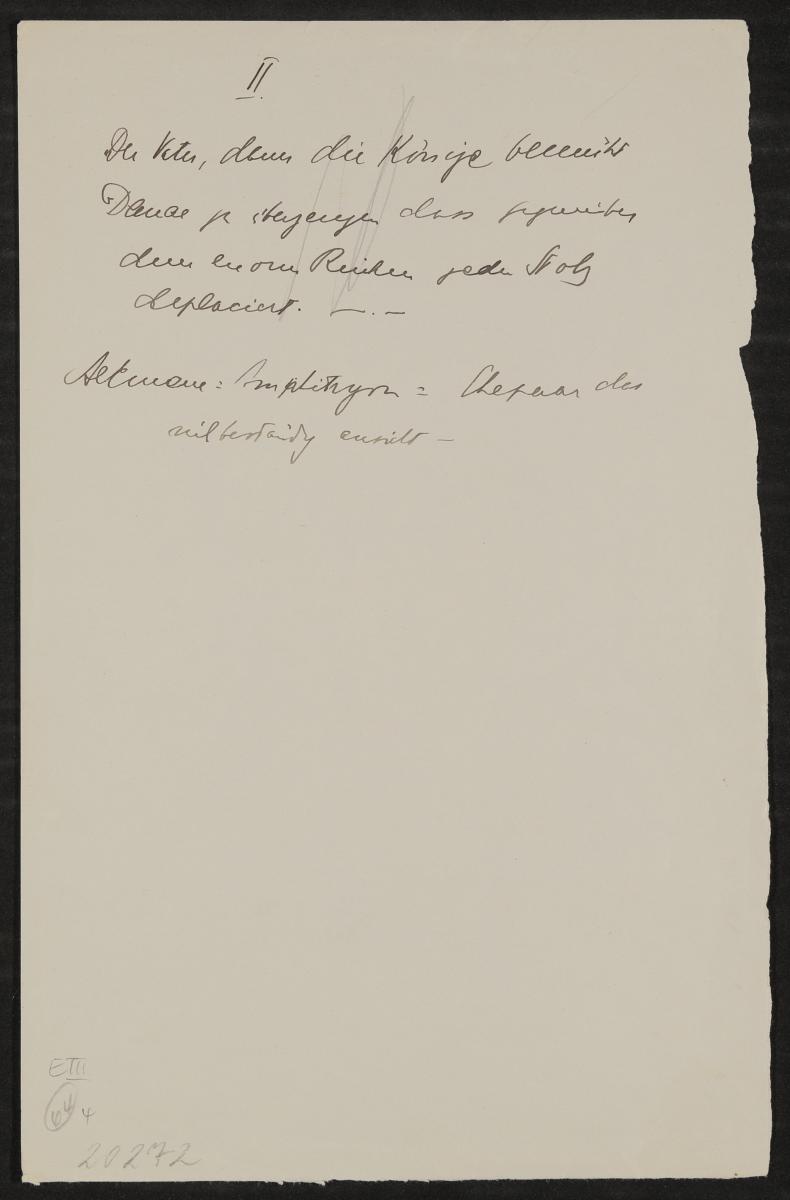 II.
Der Vater, dann die Könige bemüht
Danae zu überzeugen dass gegenüber
dem enorm Reichen jeder Stolz
deplaciert. —.—
Alkmene = Amphitryon = Ehepaar das
enricht —
EIII
4
20272